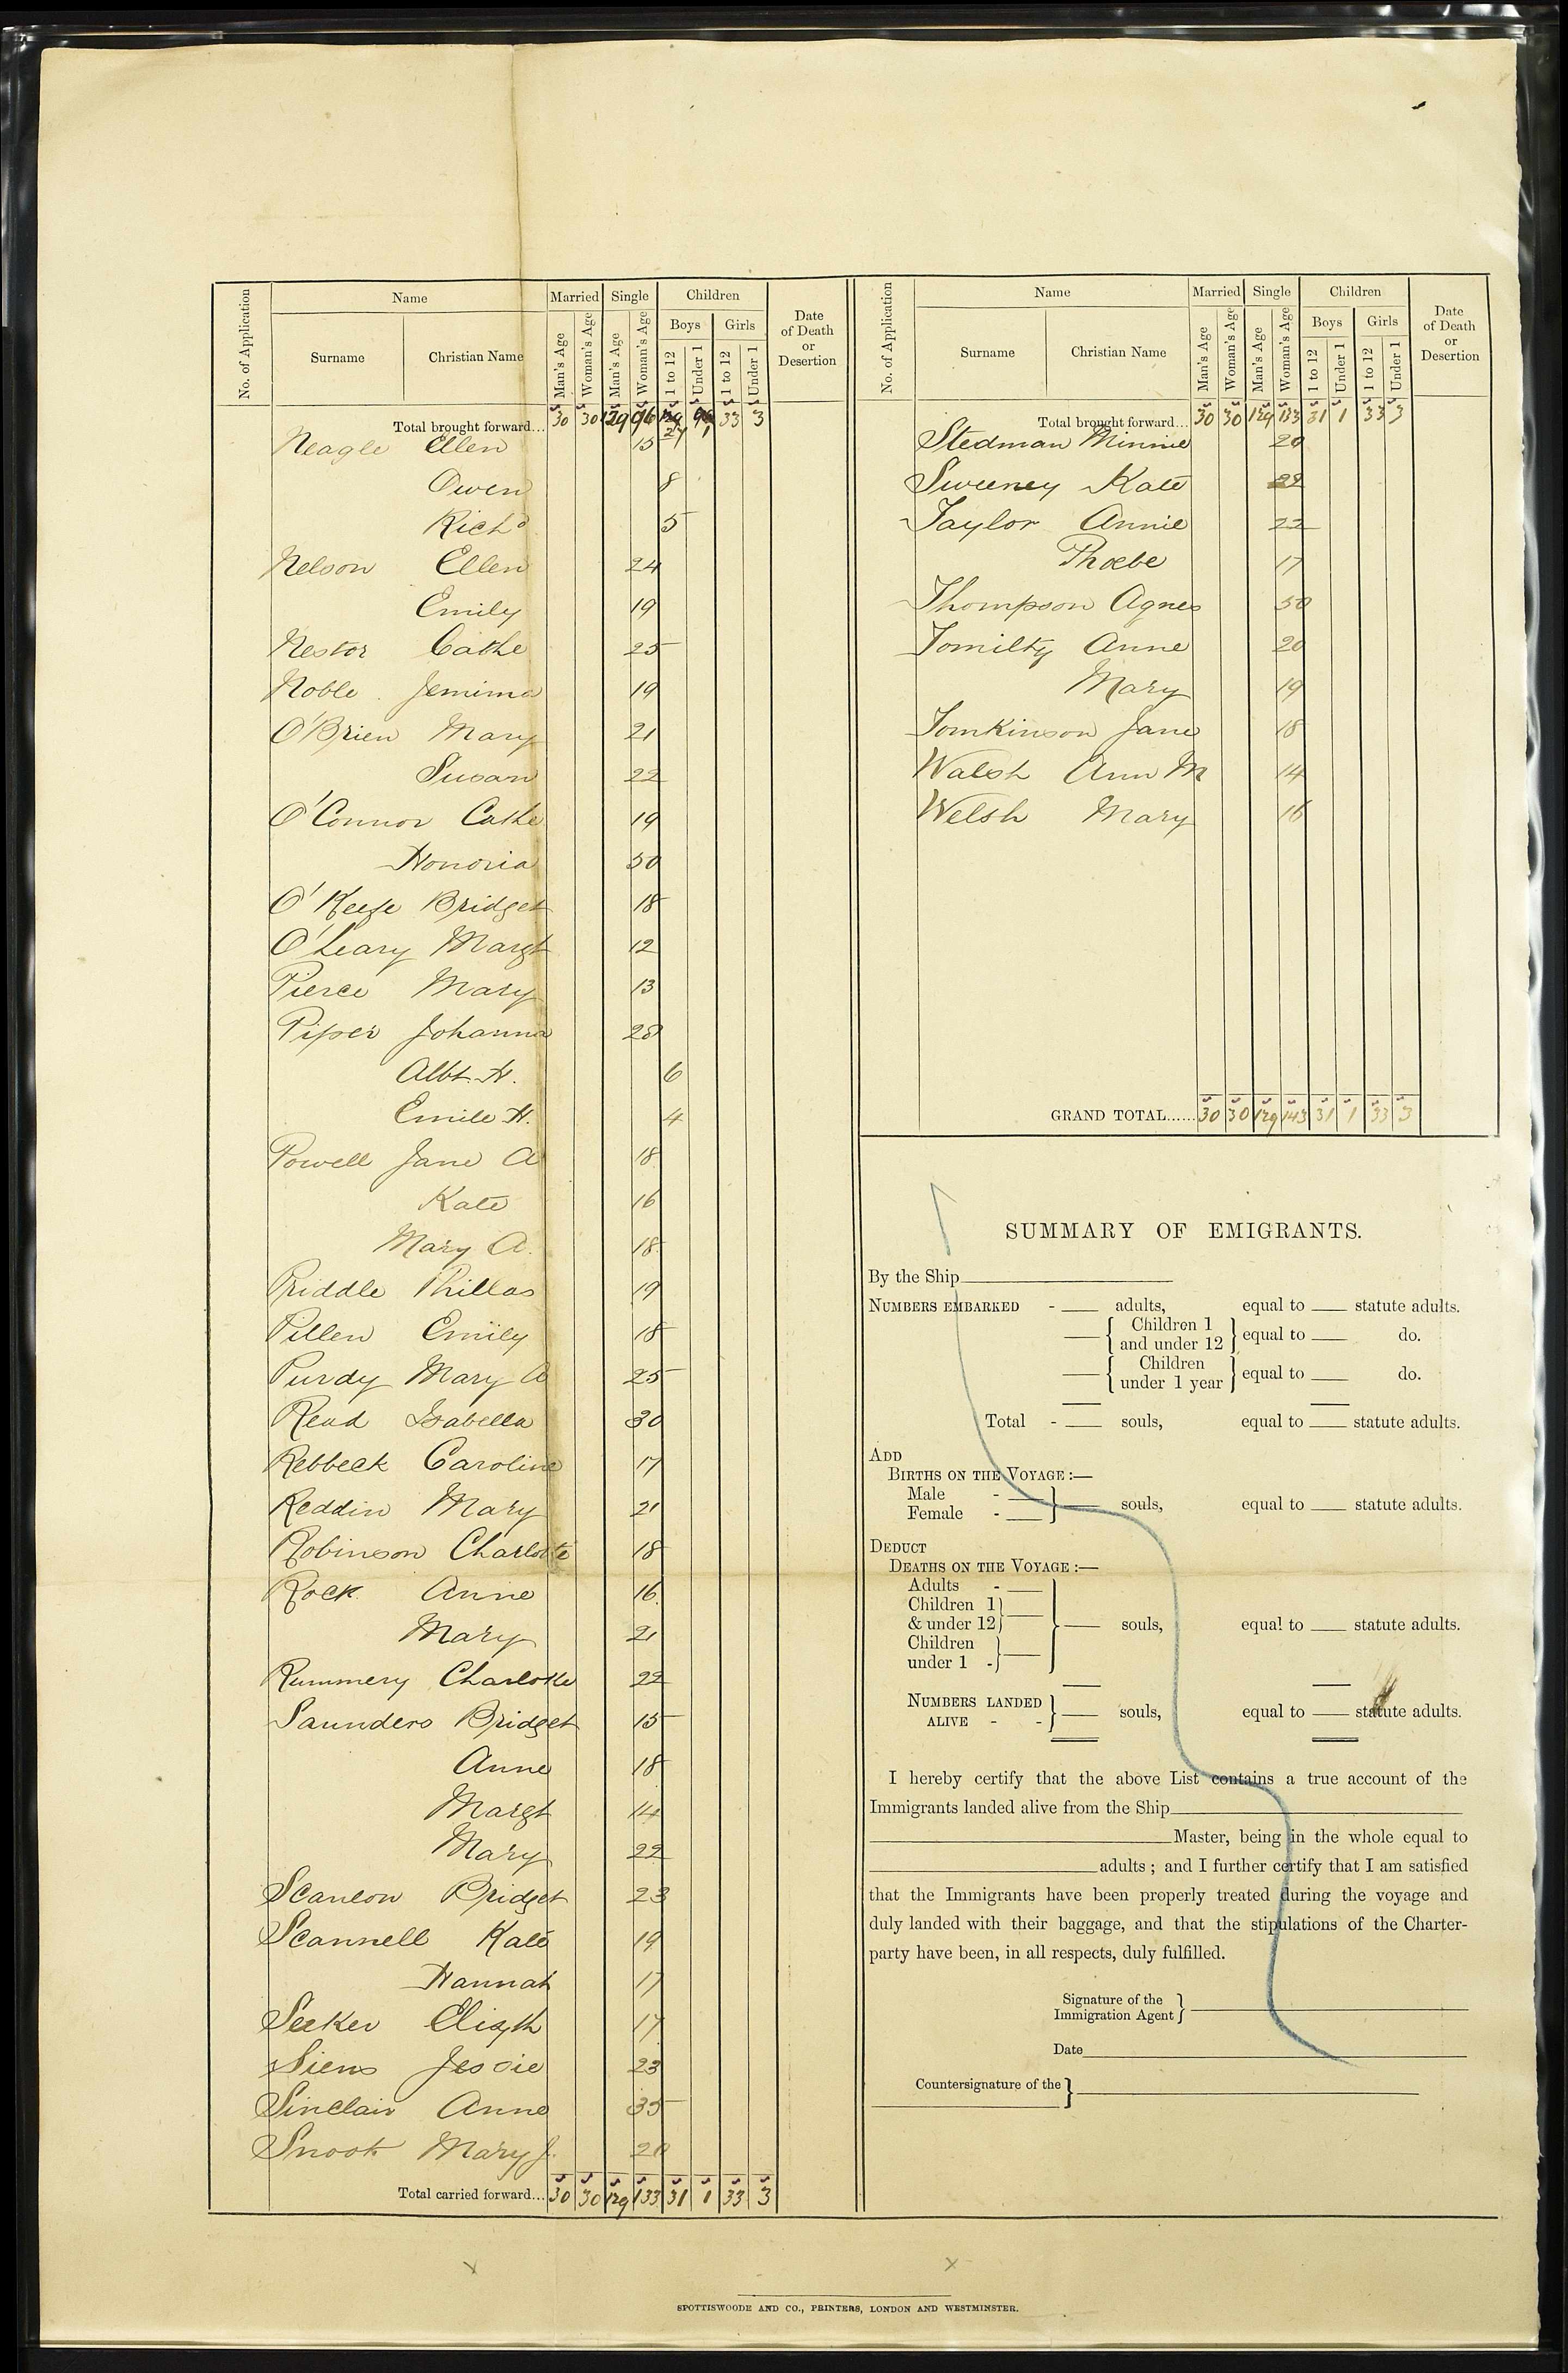 No. of Application Name Married Single Children Date of Death or Desertion
Surname Christian Name Man's Age Woman's Age Man's Age Woman's Age Boys Girls
1 to 12 Under 1 1 to 12 Under 1
Total brought forward... 30 30 129 96 27 1 33 3
Neagle Ellen 15
Owen 8
Richd 5
Nelson Ellen 24
Emily 19
Nestor Cathe 25
Noble Jemima 19
O'Brien Mary 21
Susan 22
O'Connor Cathe 19
Honoria 50
O'Keefe Bridget 18
O'Leary Margt 12
Pierce Mary 13
Piper Johanna 28
Albt H. 6
Emile H. 4
Powell Jane A 18
Kate 16
Mary A. 18
Priddle Phillas 19
Pillen Emily 18
Purdy Mary A 25
Read Isabella 30
Rebbeck Caroline 17
Reddin Mary 21
Robinson Charlotte 18
Rock Anne 16
Mary 21
Rummery Charlotte 22
Saunders Bridget 15
Anne 18
Margt 14
Mary 22
Scanlon Bridget 23
Scannell Kate 19
Hannah 17
Seeker Elizth 17
Siens Jessie 23
Sinclair Anne 35
Snook Mary J. 20
Total carried forward... 30 30 129 133 31 1 33 3
No. of Application Name Married Single Children Date of Death or Desertion
Surname Christian Name Man's Age Woman's Age Man's Age Woman's Age Boys Girls
1 to 12 Under 1 1 to 12 Under 1
Total brought forward... 30 30 129 133 31 1 33 3
Stedman Minnie 20
Sweeney Kate 22
Taylor Annie 22
Phoebe 17
Thompson Agnes 50
Tomilty Anne 20
Mary 19
Tomkinson Jane 18
Walsh Ann M 14
Welsh Mary 16
GRAND TOTAL...... 30 30 129 143 31 1 33 3
SUMMARY OF EMIGRANTS.
By the Ship
NUMBERS EMBARKED - adults, equal to statute adults.
Children 1 and under 12 equal to do.
Children under 1 year equal to do.
Total - souls, equal to statute adults.
ADD
BIRTHS ON THE VOYAGE :—
Male -
Female - souls, equal to statute adults.
DEDUCT
DEATHS ON THE VOYAGE :—
Adults -
Children 1
& under 12 souls, equal to statute adults.
Children
under 1 -
NUMBERS LANDED
ALIVE - - souls, equal to statute adults.
I hereby certify that the above List contains a true account of the
Immigrants landed alive from the Ship
Master, being in the whole equal to
adults ; and I further certify that I am satisfied
that the Immigrants have been properly treated during the voyage and
duly landed with their baggage, and that the stipulations of the Charter-
party have been, in all respects, duly fulfilled.
Signature of the
Immigration Agent
Date
Countersignature of the
SPOTTISWOODE AND CO., PRINTERS, LONDON AND WESTMINSTER.